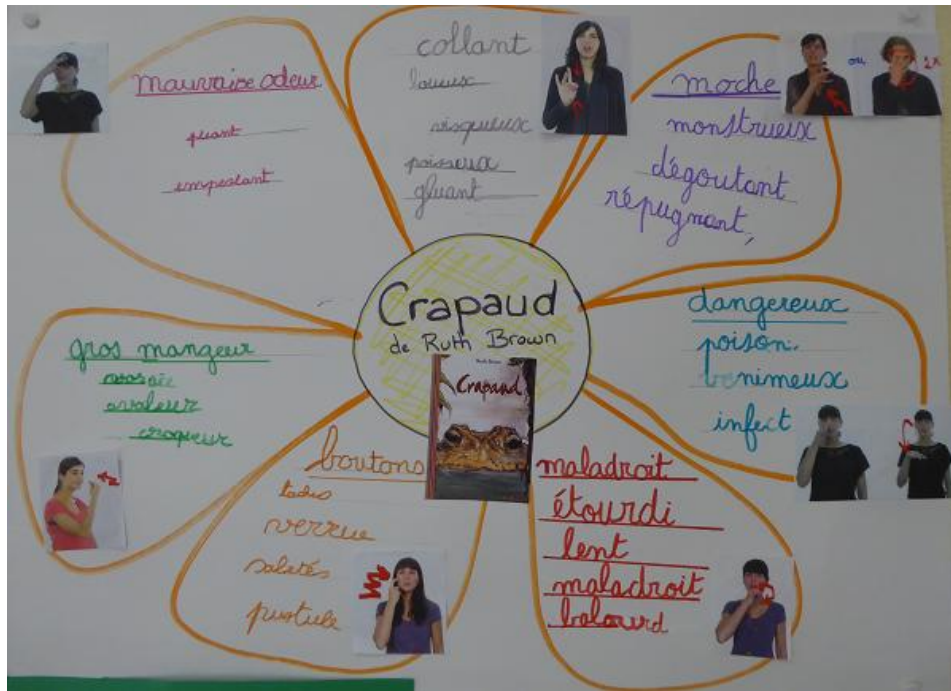 mauvaise odeur
puant
empestant
collant
visqueux
poisseux
gluant
moche
monstrueux
dégoutant
répugnant,
ou
2x
Crapaud
de Ruth Brown
Ruth Brown
Crapaud
dangereux
poison.
venimeux
infect
gros mangeur
avaleur
croqueur
boutons
verrue
saletés
pustule
maladroit
étourdi
lent
maladroit
balourd